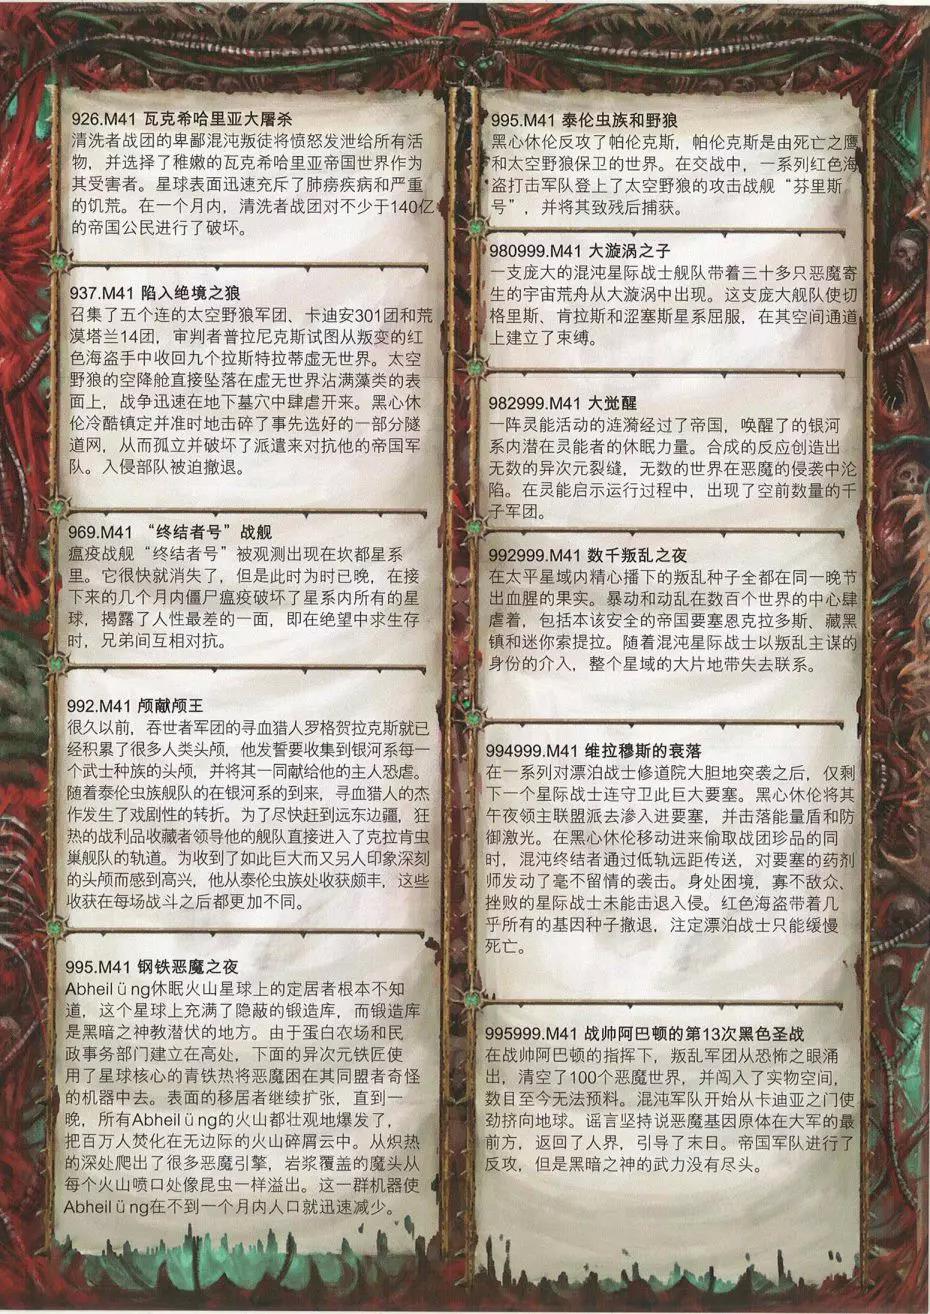 926.M41 瓦克希哈里亚大屠杀
清洗者战团的卑鄙混沌叛徒将愤怒发泄给所有活
物，并选择了稚嫩的瓦克希哈里亚帝国世界作为
其受害者。星球表面迅速充斥了肺痨疾病和严重
的饥荒。在一个月内，清洗者战团对不少于140亿
的帝国公民进行了破坏。
937.M41 陷入绝境之狼
召集了五个连的太空野狼军团、卡迪安301团和荒
漠塔兰14团，审判者普拉尼克斯试图从叛变的红
色海盗手中收回九个拉斯特拉蒂虚无世界。太空
野狼的空降舱直接坠落在虚无世界沾满藻类的表
面上，战争迅速在地下墓穴中肆虐开来。黑心休
伦冷酷镇定并准时地击碎了事先选好的一部分隧
道网，从而孤立并破坏了派遣来对抗他的帝国军
队。入侵部队被迫撤退。
969.M41 “终结者号”战舰
瘟疫战舰“终结者号”被观测出现在坎都星系
里。它很快就消失了，但是此时为时已晚，在接
下来的几个月内僵尸瘟疫破坏了星系内所有的星
球，揭露了人性最差的一面，即在绝望中求生存
时，兄弟间互相对抗。
992.M41 颅献颅王
很久以前，吞世者军团的寻血猎人罗格贺拉克斯就已
经积累了很多人类头颅，他发誓要收集到银河系每一
个武士种族的头颅，并将其一同献给他的主人恐虐。
随着泰伦虫族舰队的在银河系的到来，寻血猎人的杰
作发生了戏剧性的转折。为了尽快赶到远东边疆，狂
热的战利品收藏者领导他的舰队直接进入了克拉肯虫
巢舰队的轨道。为收到了如此巨大而又另人印象深刻
的头颅而感到高兴，他从泰伦虫族处收获颇丰，这些
收获在每场战斗之后都更加不同。
995.M41 钢铁恶魔之夜
Abheilüng休眠火山星球上的定居者根本不知
道，这个星球上充满了隐蔽的锻造库，而锻造库
是黑暗之神教潜伏的地方。由于蛋白农场和民
政事务部门建立在高处，下面的异次元铁匠使
用了星球核心的青铁热将恶魔困在其同盟者奇怪
的机器中去。表面的移居者继续扩张，直到一
晚，所有Abheilüng的火山都壮观地爆发了，
把百万人焚化在无边际的火山碎屑云中。从炽热
的深处爬出了很多恶魔引擎，岩浆覆盖的魔头从
每个火山喷口处像昆虫一样溢出。这一群机器使
Abheilüng在不到一个月内人口就迅速减少。
995.M41 泰伦虫族和野狼
黑心休伦反攻了帕伦克斯，帕伦克斯是由死亡之鹰
和太空野狼保卫的世界。在交战中，一系列红色海
盗打击军队登上了太空野狼的攻击战舰“芬里斯
号”，并将其致残后捕获。
980999.M41 大漩涡之子
一支庞大的混沌星际战士舰队带着三十多只恶魔寄
生的宇宙荒舟从大漩涡中出现。这支庞大舰队使切
格里斯、肯拉斯和涩塞斯星系屈服，在其空间通道
上建立了束缚。
982999.M41 大觉醒
一阵灵能活动的涟漪经过了帝国，唤醒了的银河
系内潜在灵能者的休眠力量。合成的反应创造出
无数的异次元裂缝，无数的世界在恶魔的侵袭中沦
陷。在灵能启示运行过程中，出现了空前数量的千
子军团。
992999.M41 数千叛乱之夜
在太平星域内精心播下的叛乱种子全都在同一晚节
出血腥的果实。暴动和动乱在数百个世界的中心肆
虐着，包括本该安全的帝国要塞恩克拉多斯、藏黑
镇和迷你索提拉。随着混沌星际战士以叛乱主谋的
身份的介入，整个星域的大片地带失去联系。
994999.M41 维拉穆斯的衰落
在一系列对漂泊战士修道院大胆地突袭之后，仅剩
下一个星际战士连守卫此巨大要塞。黑心休伦将其
午夜领主联盟派去渗入进要塞，并击落能量盾和防
御激光。在黑心休伦移动进来偷取战团珍品的同
时，混沌终结者通过低轨远距传送，对要塞的药剂
师发动了毫不留情的袭击。身处困境，寡不敌众、
挫败的星际战士未能击退入侵。红色海盗带着几
乎所有的基因种子撤退，注定漂泊战士只能缓慢
死亡。
995999.M41 战帅阿巴顿的第13次黑色圣战
在战帅阿巴顿的指挥下，叛乱军团从恐怖之眼涌
出，清空了100个恶魔世界，并闯入了实物空间，
数目至今无法预料。混沌军队开始从卡迪亚之门使
劲挤向地球。谣言坚持说恶魔基因原体在大军的最
前方，返回了人界，引导了末日。帝国军队进行了
反攻，但是黑暗之神的武力没有尽头。